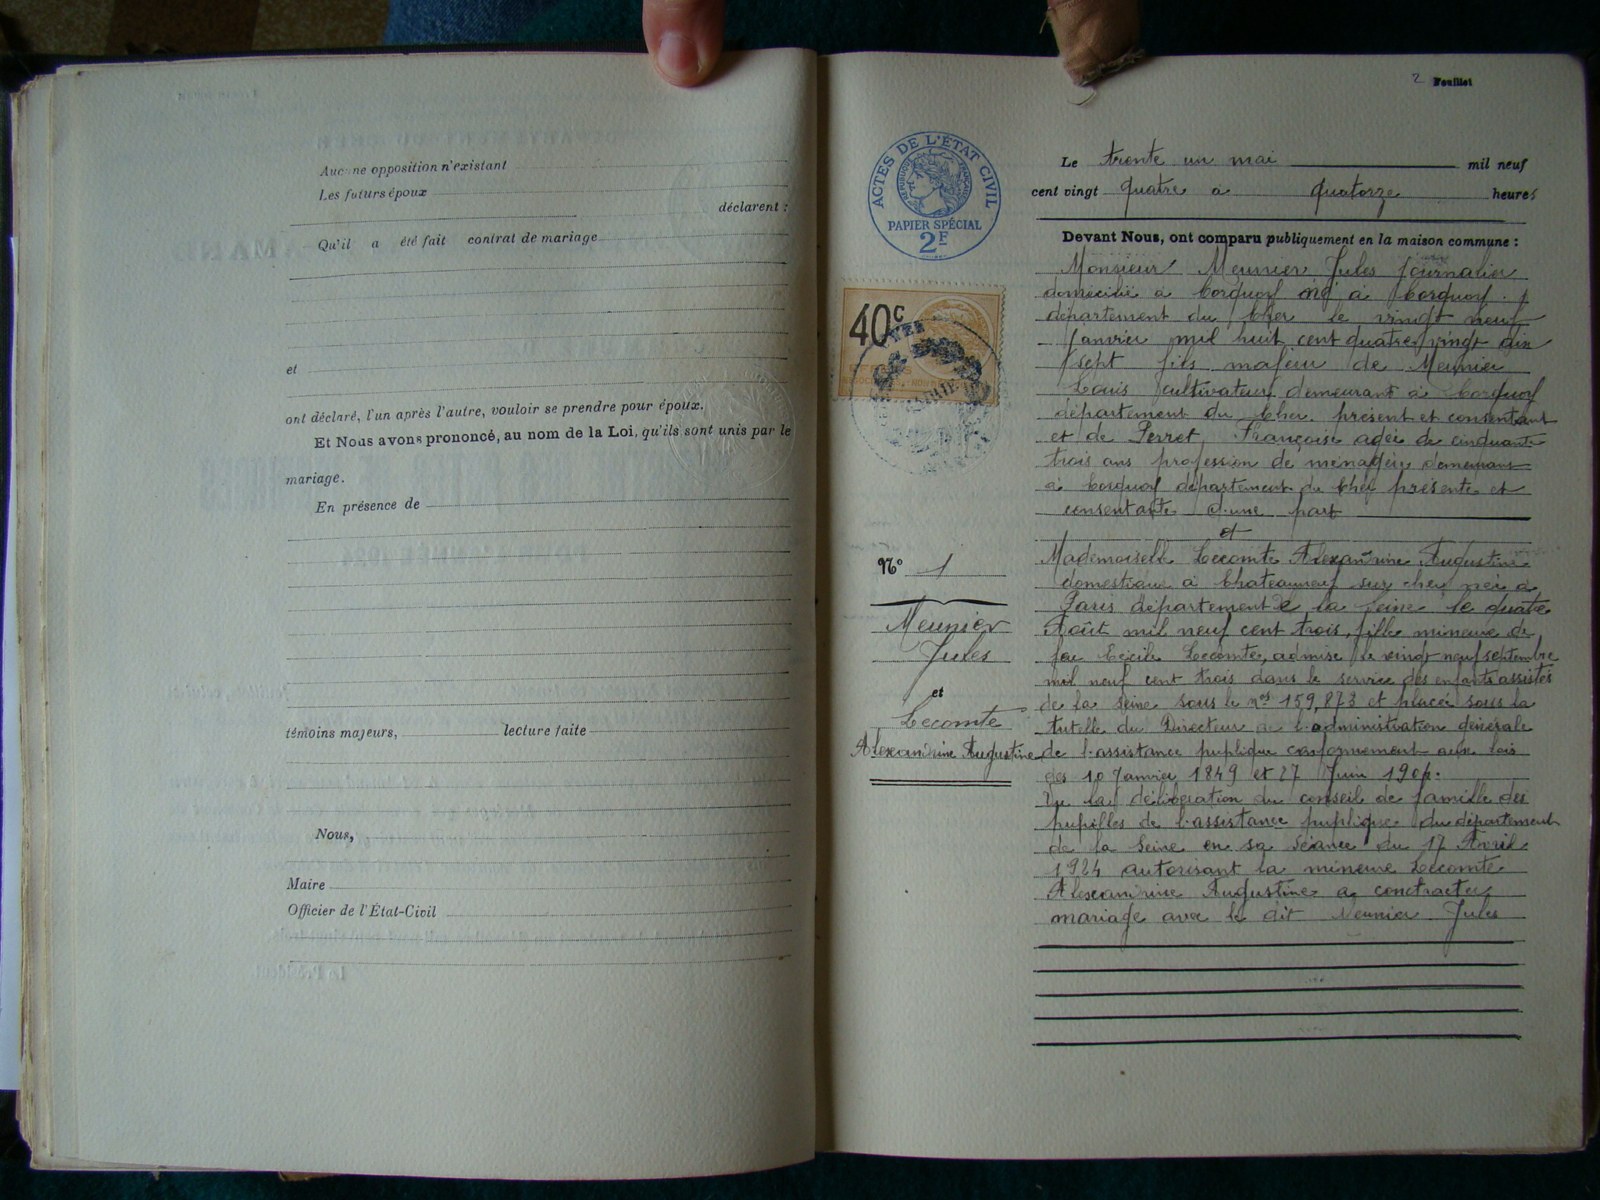 Aucune opposition n'existant
Les futurs époux
déclarent :
Qu'il a été fait contrat de mariage
et
ont déclaré, l'un après l'autre, vouloir se prendre pour époux.
Et Nous avons prononcé, au nom de la Loi, qu'ils sont unis par le
mariage.
En présence de
témoins majeurs, lecture faite
Nous,
Maire
Officier de l'État-Civil
2 Feuillet
ACTES DE L'ÉTAT CIVIL
RÉPUBLIQUE FRANÇAISE
PAPIER SPÉCIAL
2F
40c
N° 1
Meunier
Jules
et
Lecomte
Alexandrine Augustine
Le trente un mai mil neuf
cent vingt quatre à quatorze heures
Devant Nous, ont comparu publiquement en la maison commune :
Monsieur Meunier Jules journalier
domicilié à Corquoy né à Corquoy
département du Cher le vingt neuf
Janvier mil huit cent quatre vingt dix
sept fils majeur de Meunier
Louis cultivateur demeurant à Corquoy
département du Cher présent et consentant
et de Perret Françoise agée de cinquante
trois ans profession de ménagère demeurant
à Corquoy département du Cher présente et
consentante d'une part
et
Mademoiselle Lecomte Alexandrine Augustine
domestique à Chateauneuf sur cher née à
Paris département de la Seine le quatre
Août mil neuf cent trois, fille mineure de
feu Cécile Lecomte, admise le vingt neuf septembre
mil neuf cent trois dans le service des enfants assistés
de la Seine sous le nos 159,873 et placée sous la
tutelle du Directeur de l'administration générale
de l'assistance puplique conformement aux lois
des 10 Janvier 1849 et 27 Juin 1904.
Vu la délibération du conseil de famille des
pupilles de l'assistance puplique du département
de la Seine en sa séance du 17 Avril
1924 autorisant la mineure Lecomte
Alexandrine Augustine a contracter
mariage avec le dit Meunier Jules